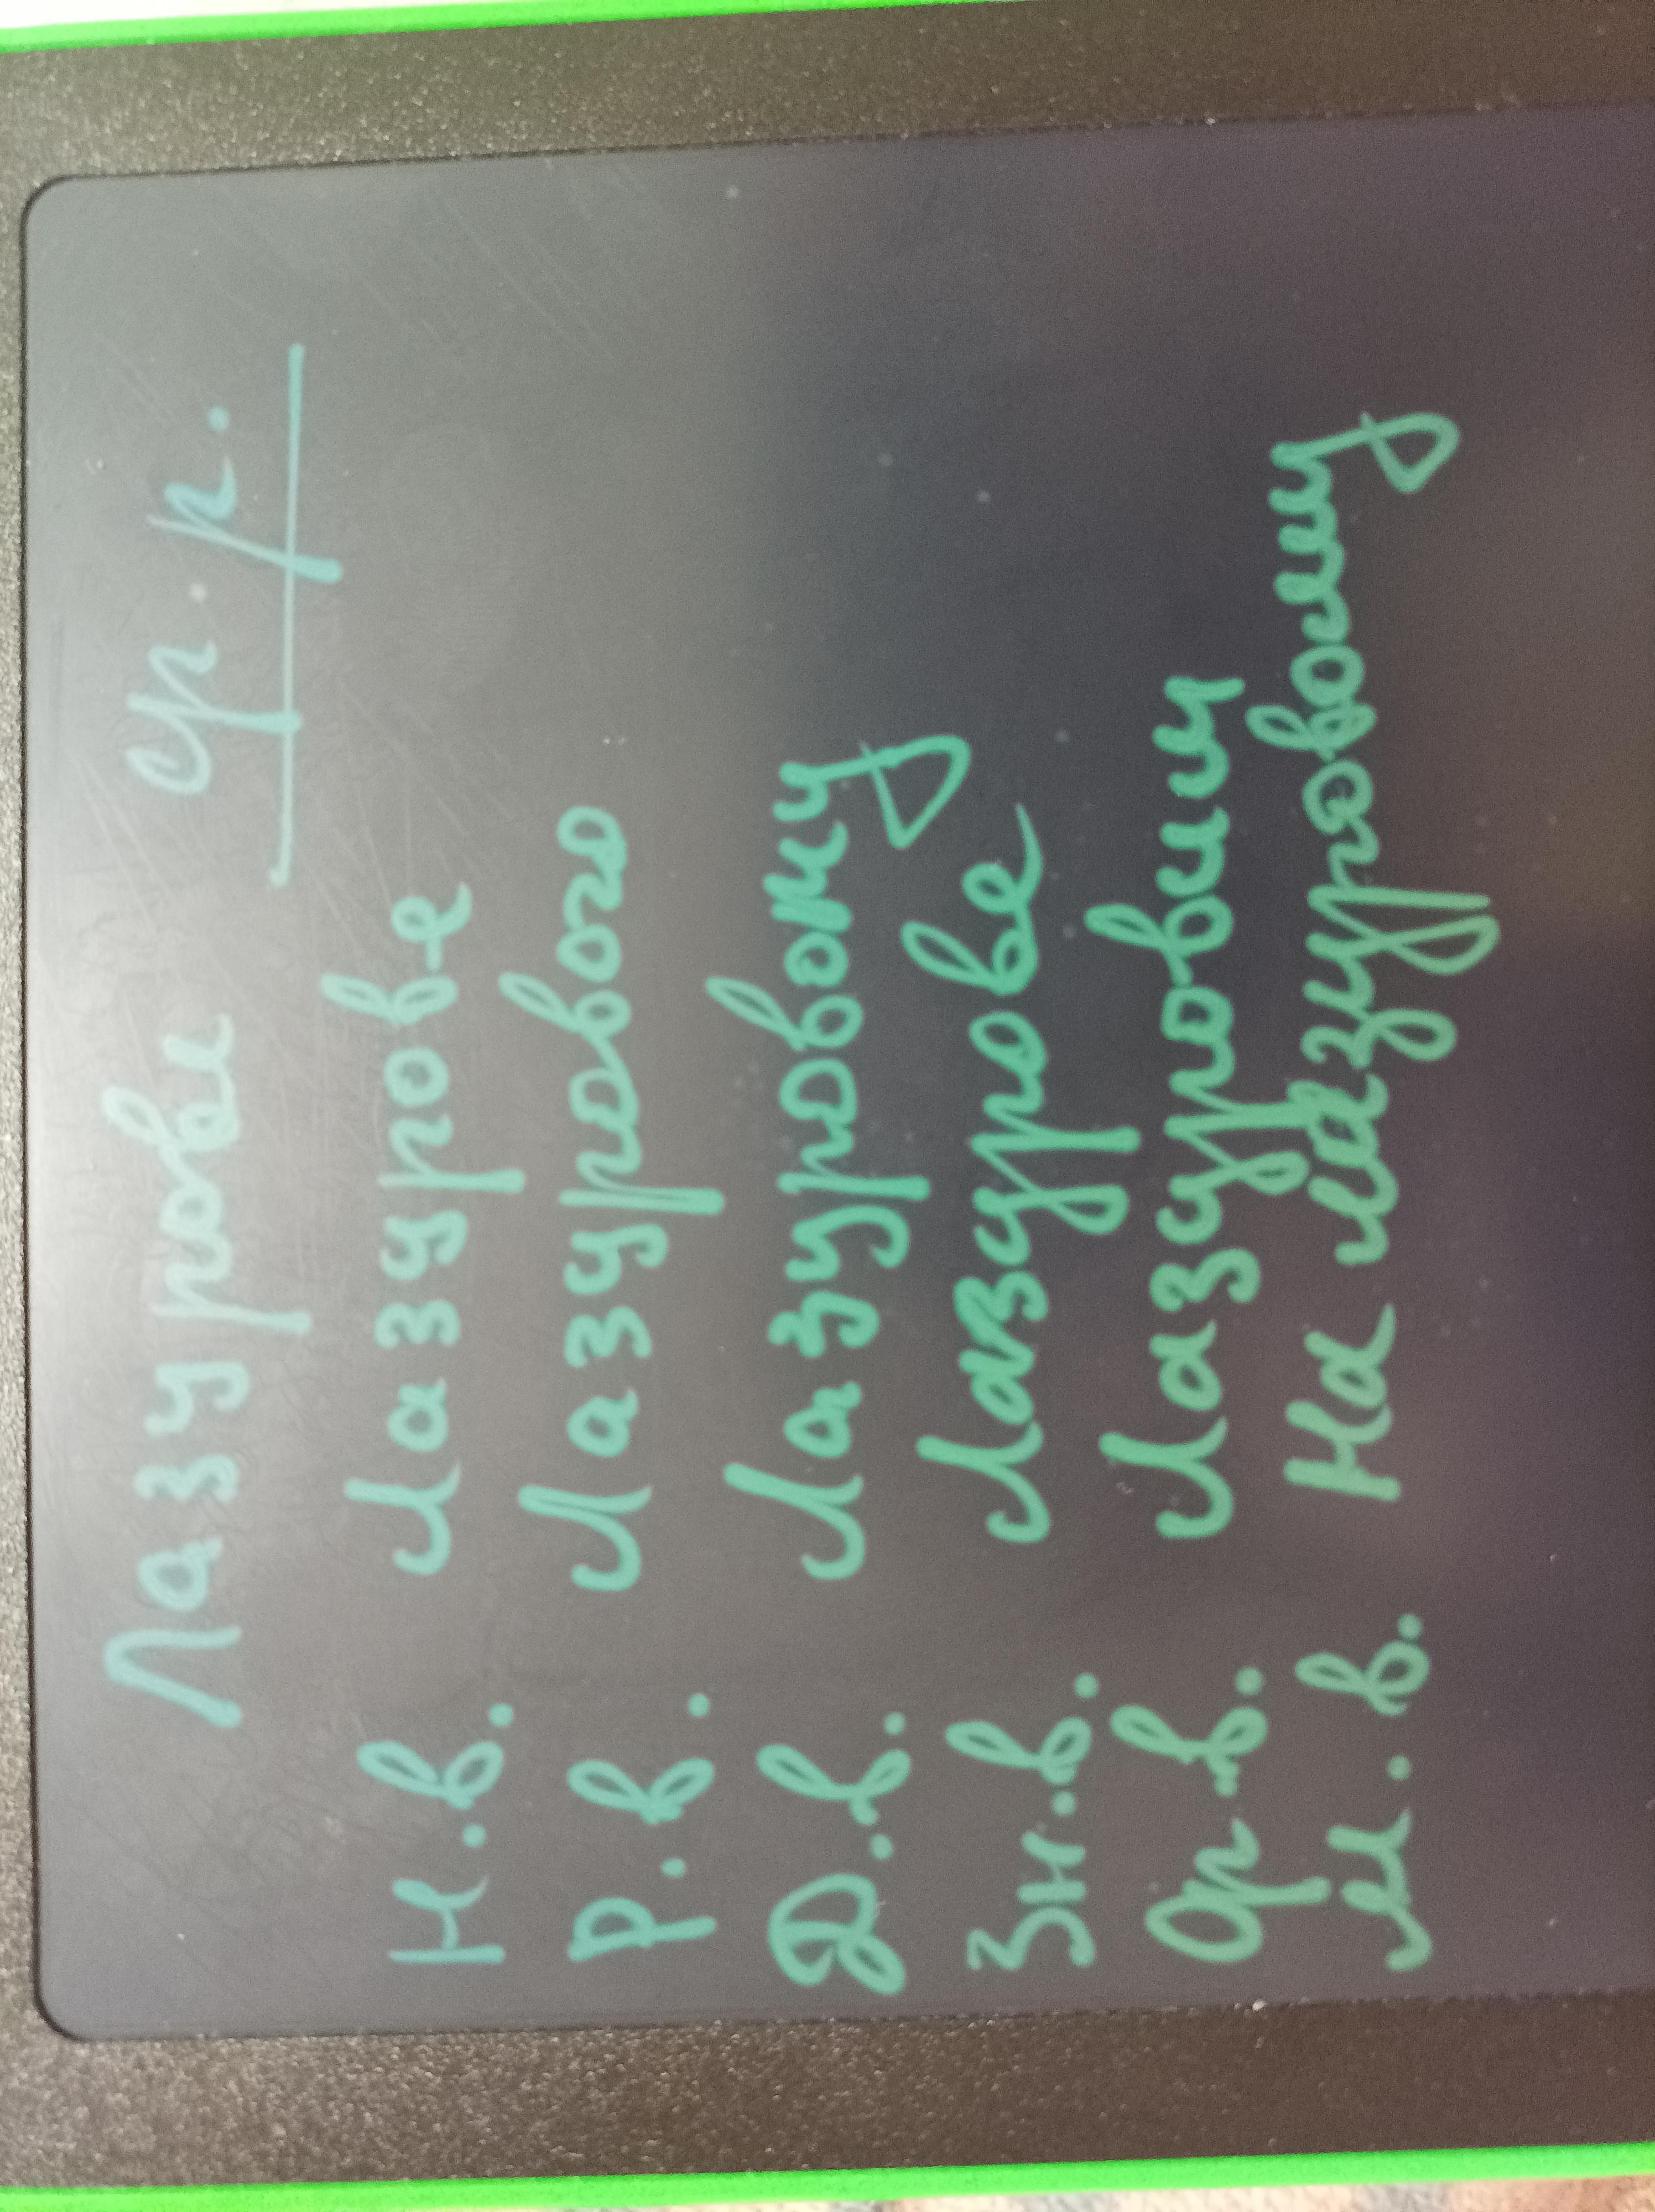 Лазурове ср. р.
Н.в. Лазурове
Р.в. Лазурового
Д.в. Лазуровому
Зн.в. Лазурове
Ор.в. Лазуровим
М.в. На лазуровому